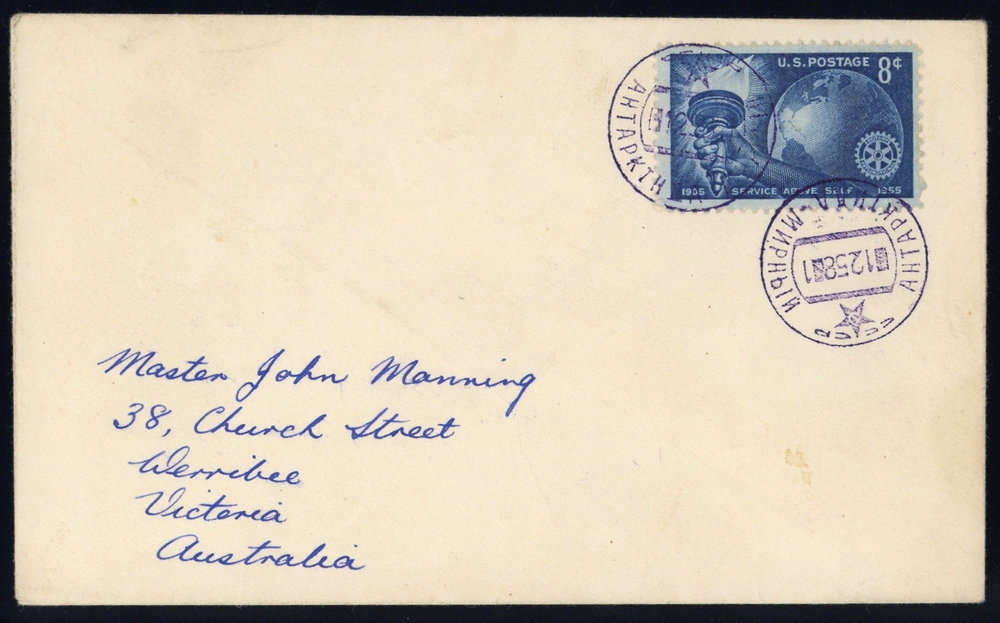 U.S. POSTAGE 8¢
1905 SERVICE ABOVE SELF 1955
АНТАРКТИ
АНТАРКТИКА-МИРНЫЙ
12581
Master John Manning
38, Church Street
Werribee
Victoria
Australia